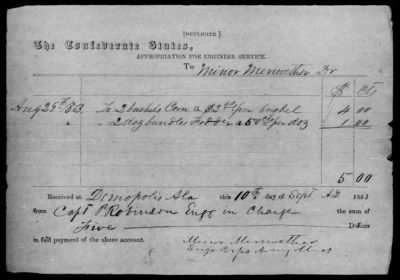 [DUPLICATE]
The Confederate States,
APPROPRIATION FOR ENGINEER SERVICE.
To Minor Meriwether Dr
$ Cts
Aug 29th 63. To 2 bushels Corn a $2 00 per bushel 4 00
" 2 doz bundles Fodder a 50 cts per doz 1 00
5 00
Received at Demopolis Ala this 10th day of Sept AD 1863
from Capt P Robinson Engr in Charge the sum of
Five Dollars
in full payment of the above account.
Minor Meriwether
Engr Corps Army Miss